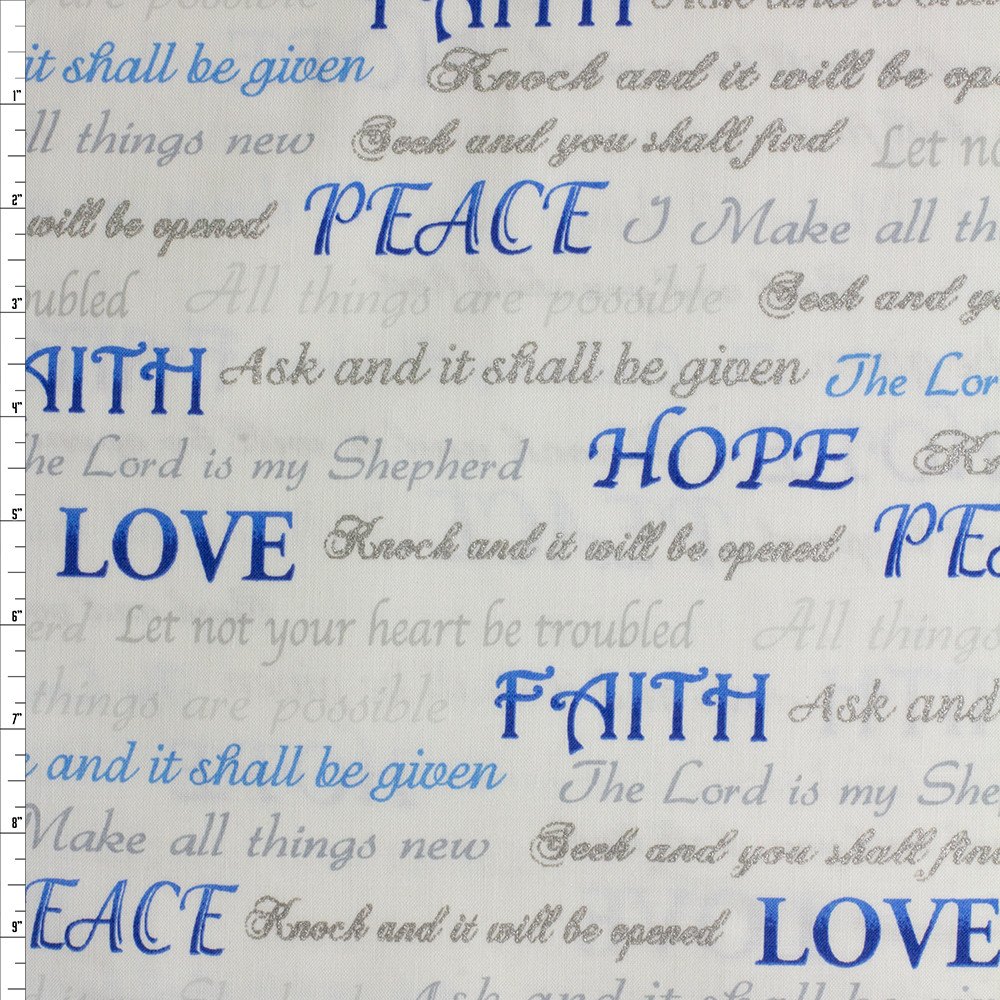 are possible FAITH Ask and it shall
it shall be given Knock and it will be ope
ll things new Seek and you shall find Let no
1"
will be opened PEACE I Make all th
2"
oubled All things are possible Seek and yo
3"
AITH Ask and it shall be given The Lor
4"
he Lord is my Shepherd HOPE Kn
LOVE Knock and it will be opened PEA
5"
erd Let not your heart be troubled All things
6"
things are possible FAITH Ask and
7"
and it shall be given The Lord is my She
Make all things new Seek and you shall find
8"
EACE Knock and it will be opened LOVE
9"
Ask and it shall be given